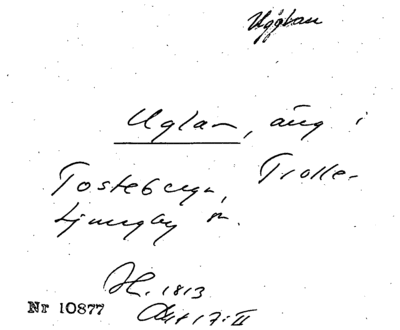 Ugglan
Uglan, äng i
Tosteberga, Trolle-
Ljungby sn.
H. 1813
Akt 17:II
Nr 10877